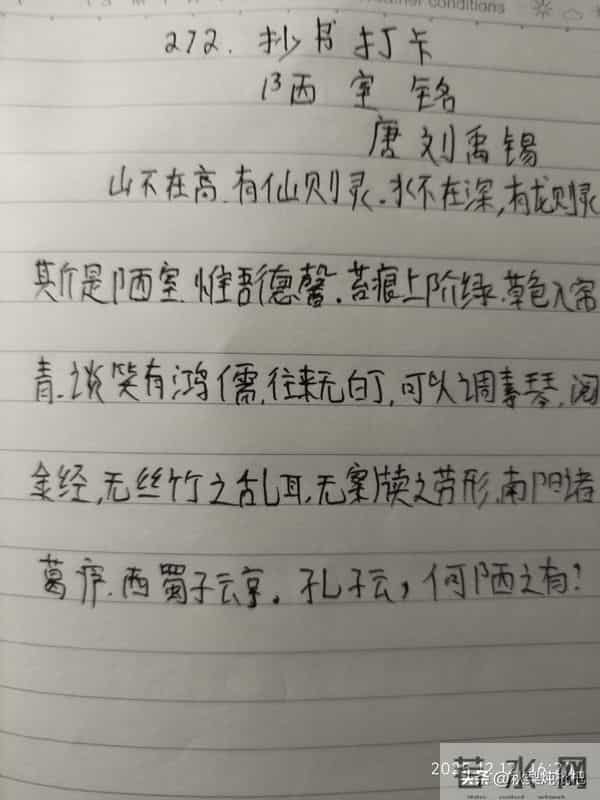 weather conditions
272. 抄书打卡
陋室铭
唐 刘禹锡
山不在高.有仙则灵.水不在深,有龙则灵
斯是陋室.惟吾德馨.苔痕上阶绿.草色入帘
青.谈笑有鸿儒,往来无白丁,可以调素琴.阅
金经,无丝竹之乱耳,无案牍之劳形.南阳诸
葛庐.西蜀子云亭。孔子云,何陋之有?
头条
苍水网